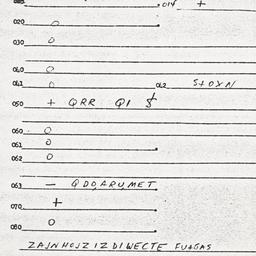 014 +
020 O
030 O
040 O
041 O 042 STOXN
050 + QRR QI $
060 O
061 O
062 O
063 — QDO,ARU,MET
070 +
080 O
ZAJNHOJZIZDIWECTE FU4GAS